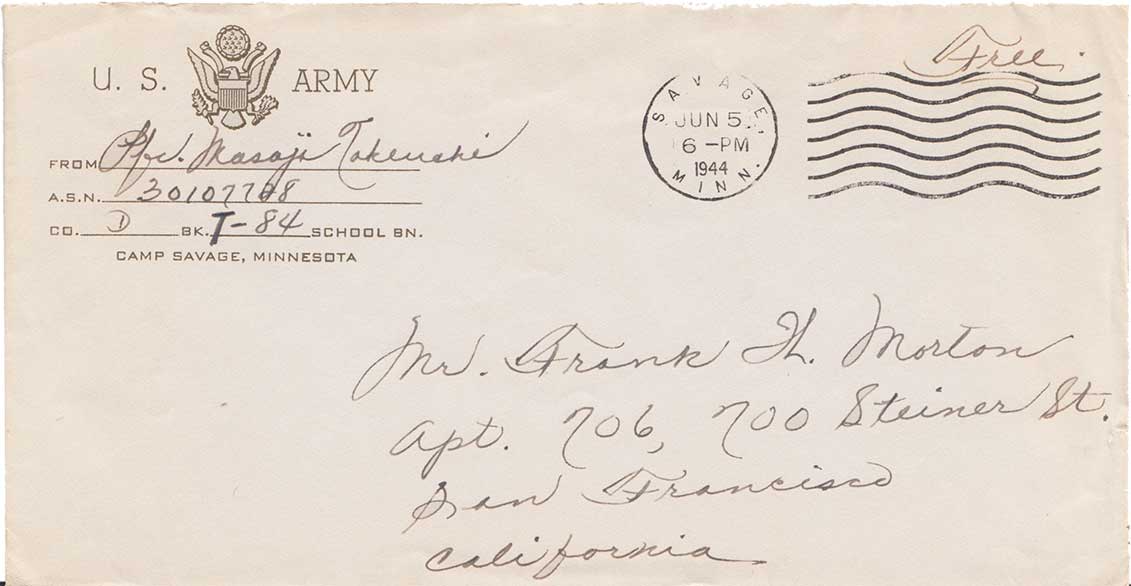 Free.
U. S. ARMY
FROM Pfc. Masaji Takeuchi
A.S.N. 30107708
CO. D BK. T-84 SCHOOL BN.
CAMP SAVAGE, MINNESOTA
SAVAGE,
JUN 5
6 -PM
1944
MINN.
Mr. Frank H. Morton
Apt. 706, 700 Steiner St.
San Francisco
California